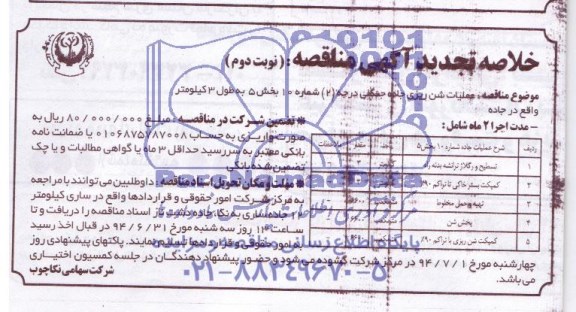 خلاصه تجدید آگهی مناقصه: (نوبت دوم)
موضوع مناقصه: عملیات شن ریزی جاده جنگلی درجه (۲) شماره ۱۰ بخش ۵ به طول ۳ کیلومتر
واقع در جاده
– مدت اجرا ۲ ماه شامل:
ردیف شرح عملیات جاده شماره ۱۰ بخش ۵
۱ تسطیح و رگلاژ ترانشه بدنه راه
۲ کمپکت بستر خاکی تا تراکم ۹۰٪
۳ تهیه و حمل مخلوط
۴ پخش شن
۵ کمپکت شن ریزی با تراکم ۹۰٪
* تضمین شرکت در مناقصه: مبلغ ۸۰/۰۰۰/۰۰۰ ریال به
صورت واریزی به حساب ۰۱۰۶۸۷۵۷۸۷۰۰۸ یا ضمانت نامه
بانکی معتبر به سررسید حداقل ۳ ماه یا گواهی مطالبات و یا چک
تضمین شده بانکی
* مهلت و مکان تحویل اسناد مناقصه: داوطلبین می‌توانند با مراجعه
به مرکز شرکت امور حقوقی و قراردادها واقع در ساری کیلومتر
جاده ساری به نکا، جاده دشت ناز اسناد مناقصه را دریافت و تا
ساعت ۱۲ روز سه شنبه مورخ ۹۴/۶/۳۱ در قبال اخذ رسید
به امور حقوقی و قراردادها تسلیم نمایند. پاکتهای پیشنهادی روز
چهارشنبه مورخ ۹۴/۷/۱ در مرکز شرکت گشوده می شود و حضور پیشنهاد دهندگان در جلسه کمسیون اختیاری
می باشد.
شرکت سهامی نکاچوب
ParsNamadData
۰۲۱-۸۸۳۴۹۶۷۰-۵